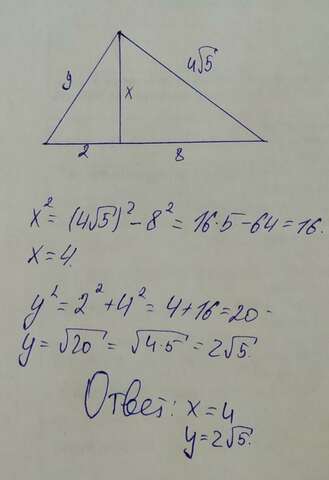 4√5
y
x
2
8
x² = (4√5)² - 8² = 16·5 - 64 = 16.
x = 4.
y² = 2² + 4² = 4 + 16 = 20
y = √20 = √4·5 = 2√5.
Ответ: x = 4
y = 2√5.